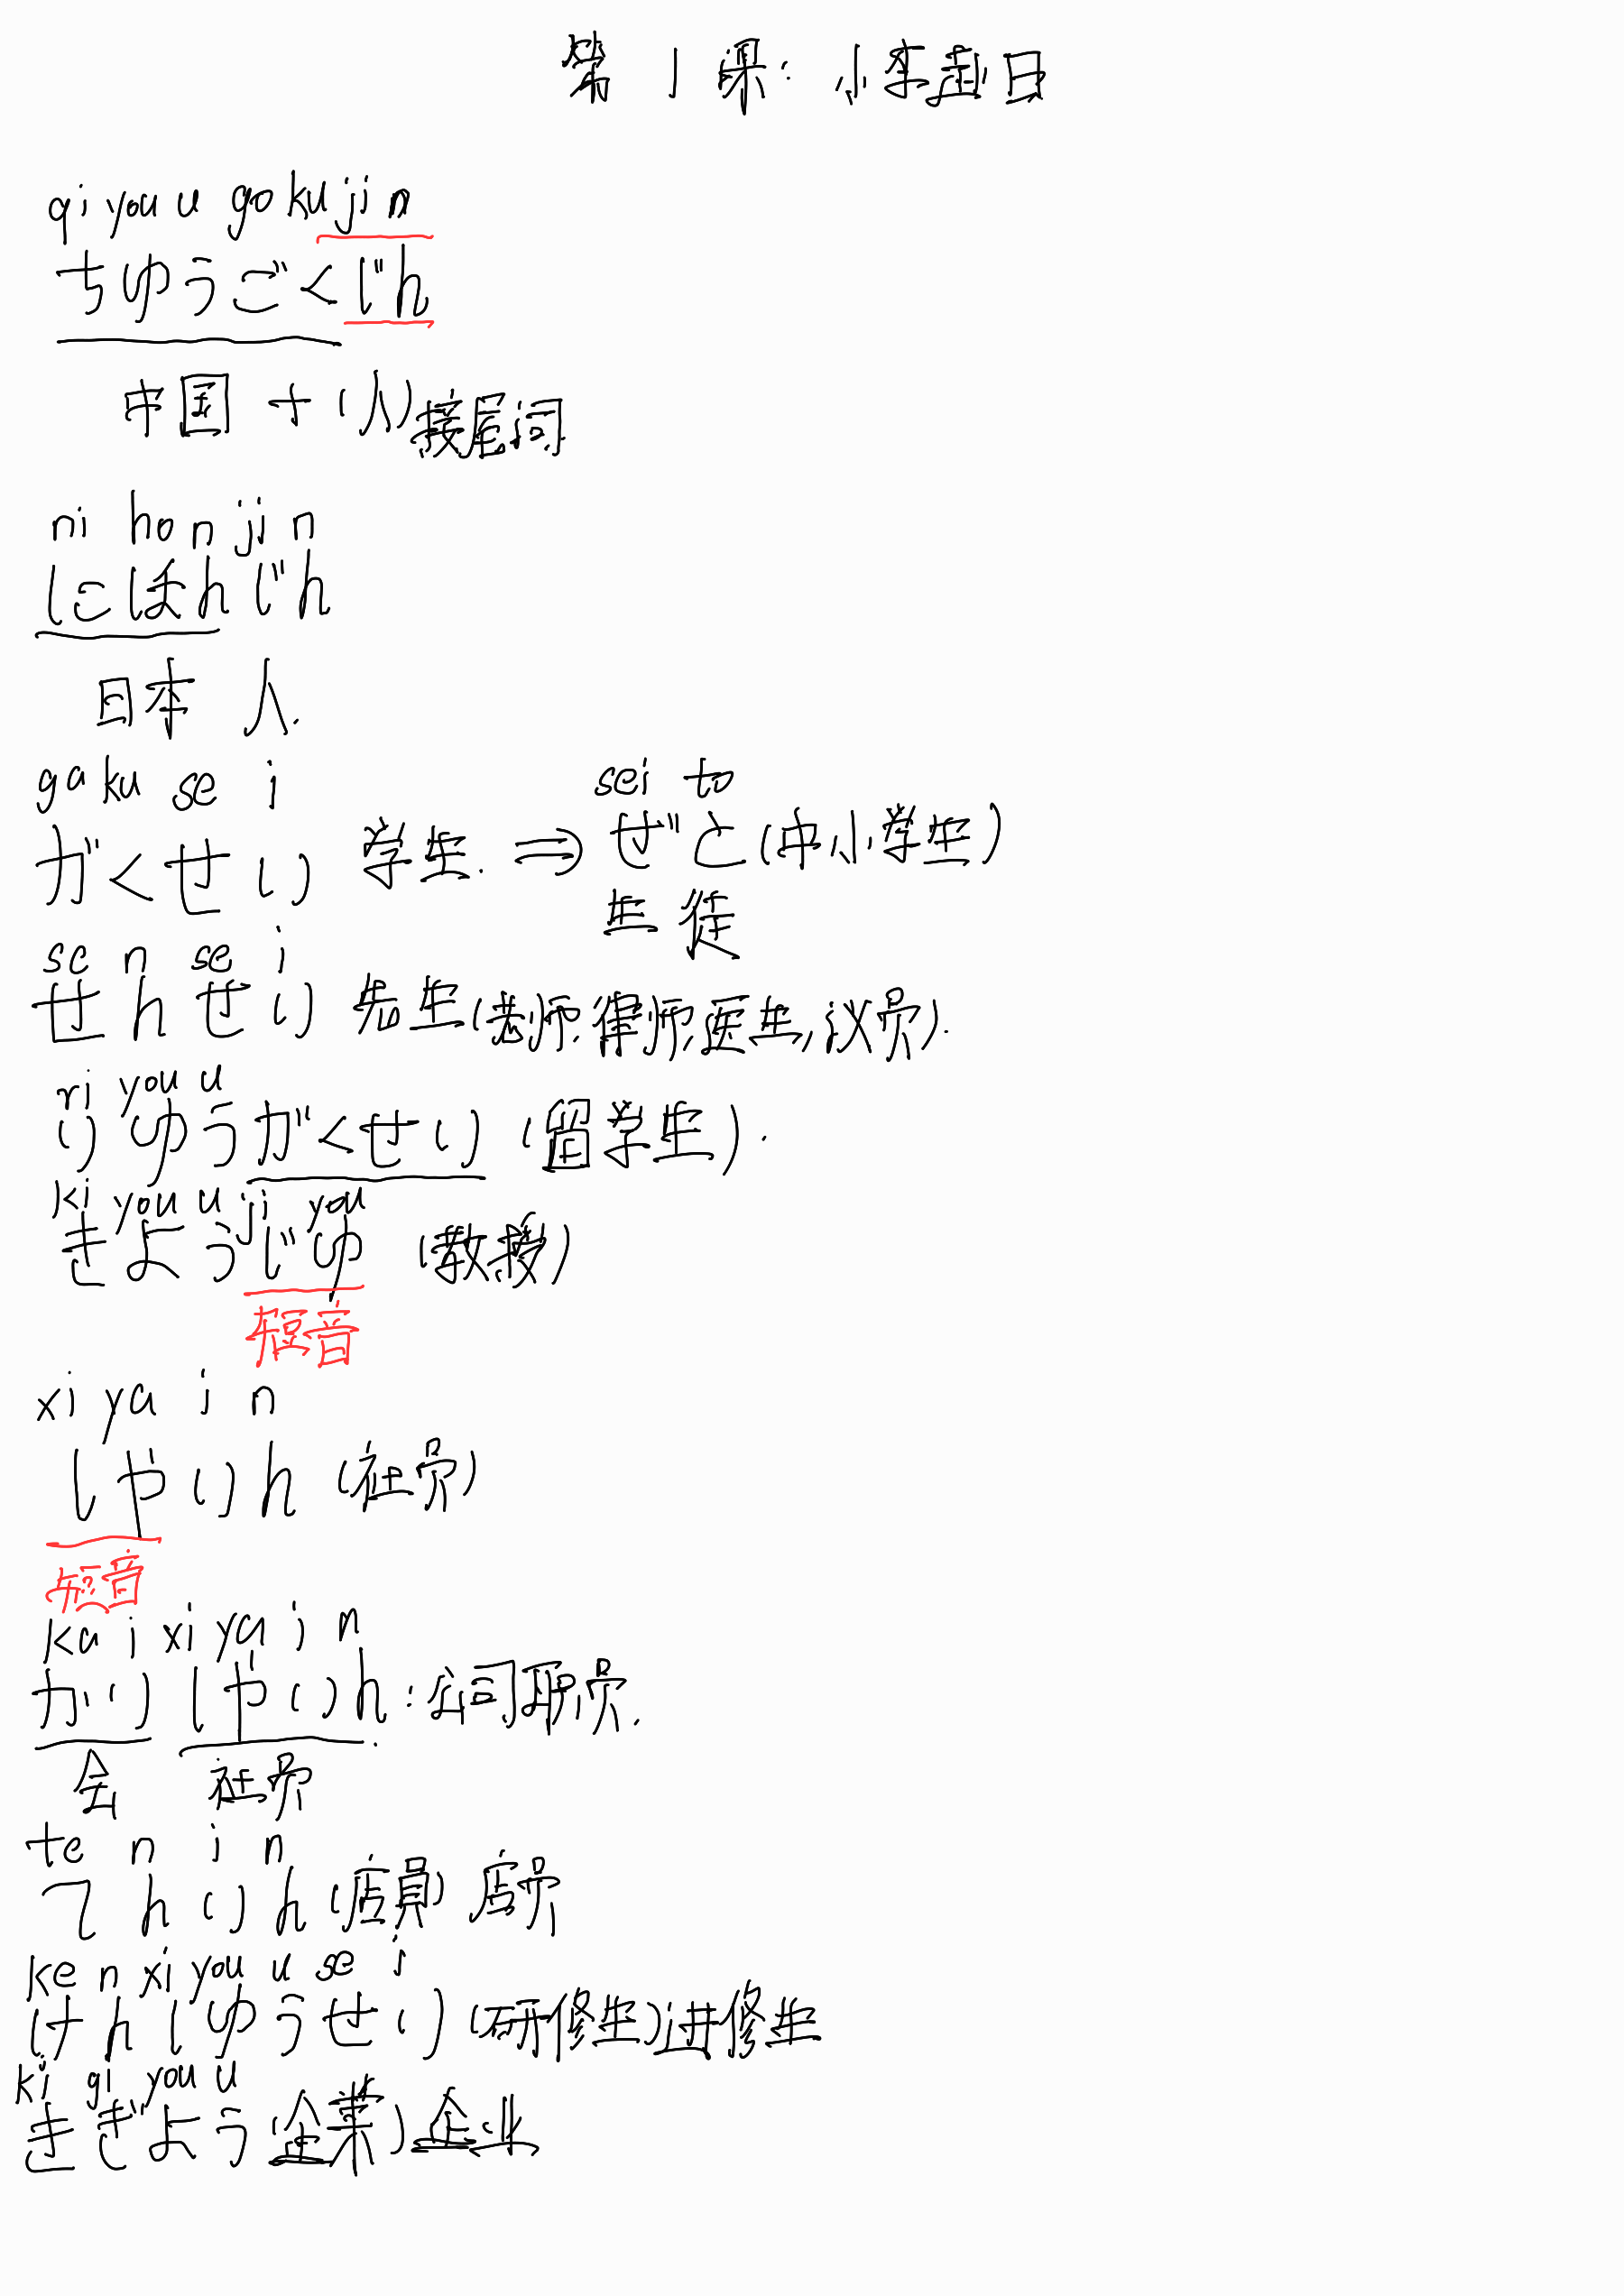 第1课：小李赴日
qi you u go ku ji n
ちゆうごくじん
中国 + (人) 接尾词
ni ho n ji n
にほんじん
日本 人.
ga ku se i sei to
がくせい 学生. ⇒ ぜと(中小学生)
生徒
se n se i
せんせい 先生(老师,律师,医生,议员).
ri you u
りゆうがくせい (留学生).
ki you u ji you
きようじゆ (教授)
短音
xi ya i n
しやいん (社员)
短音
ka i xi ya i n
かいしやいん：公司职员.
会 社员
te n i n
てんいん (店員) 店员
ke n xi you u se i
けんしゆうせい (研修生)进修生
ki gi you u
きぎよう(企業)企业